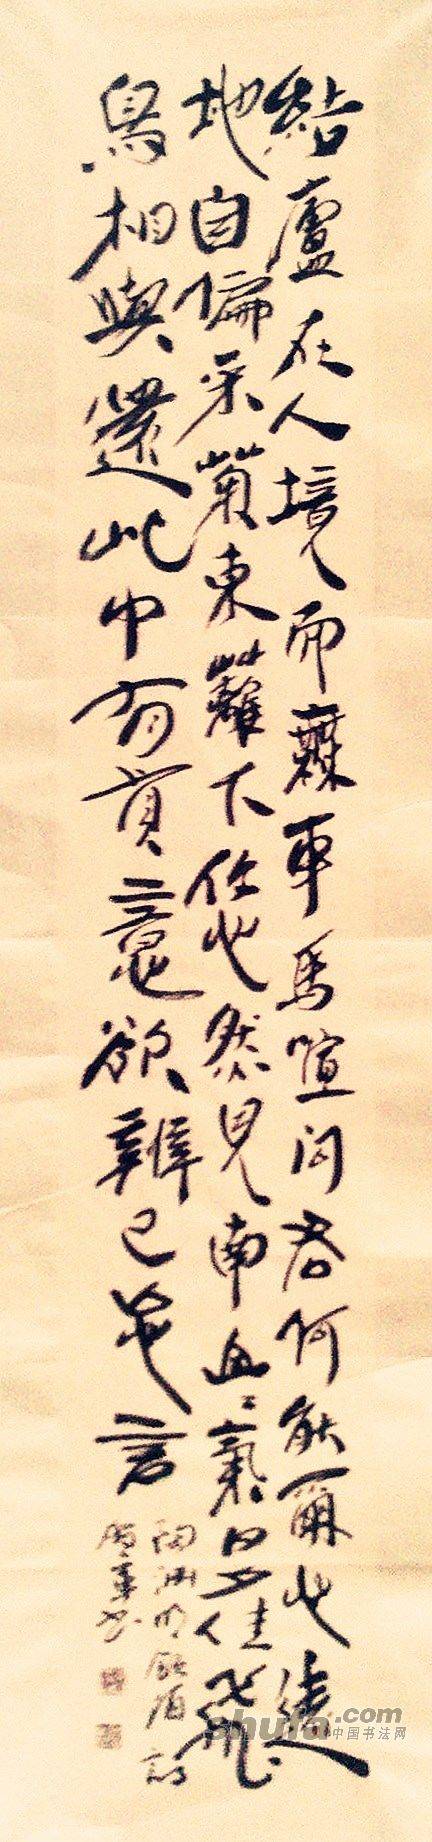 結廬在人境而無車馬喧問君何能爾心遠
地自偏采菊東籬下悠然見南山〻氣日夕佳飛
鳥相與還此中有真意欲辨已忘言
陶淵明飲酒詩
書
shufa.com
中国书法网